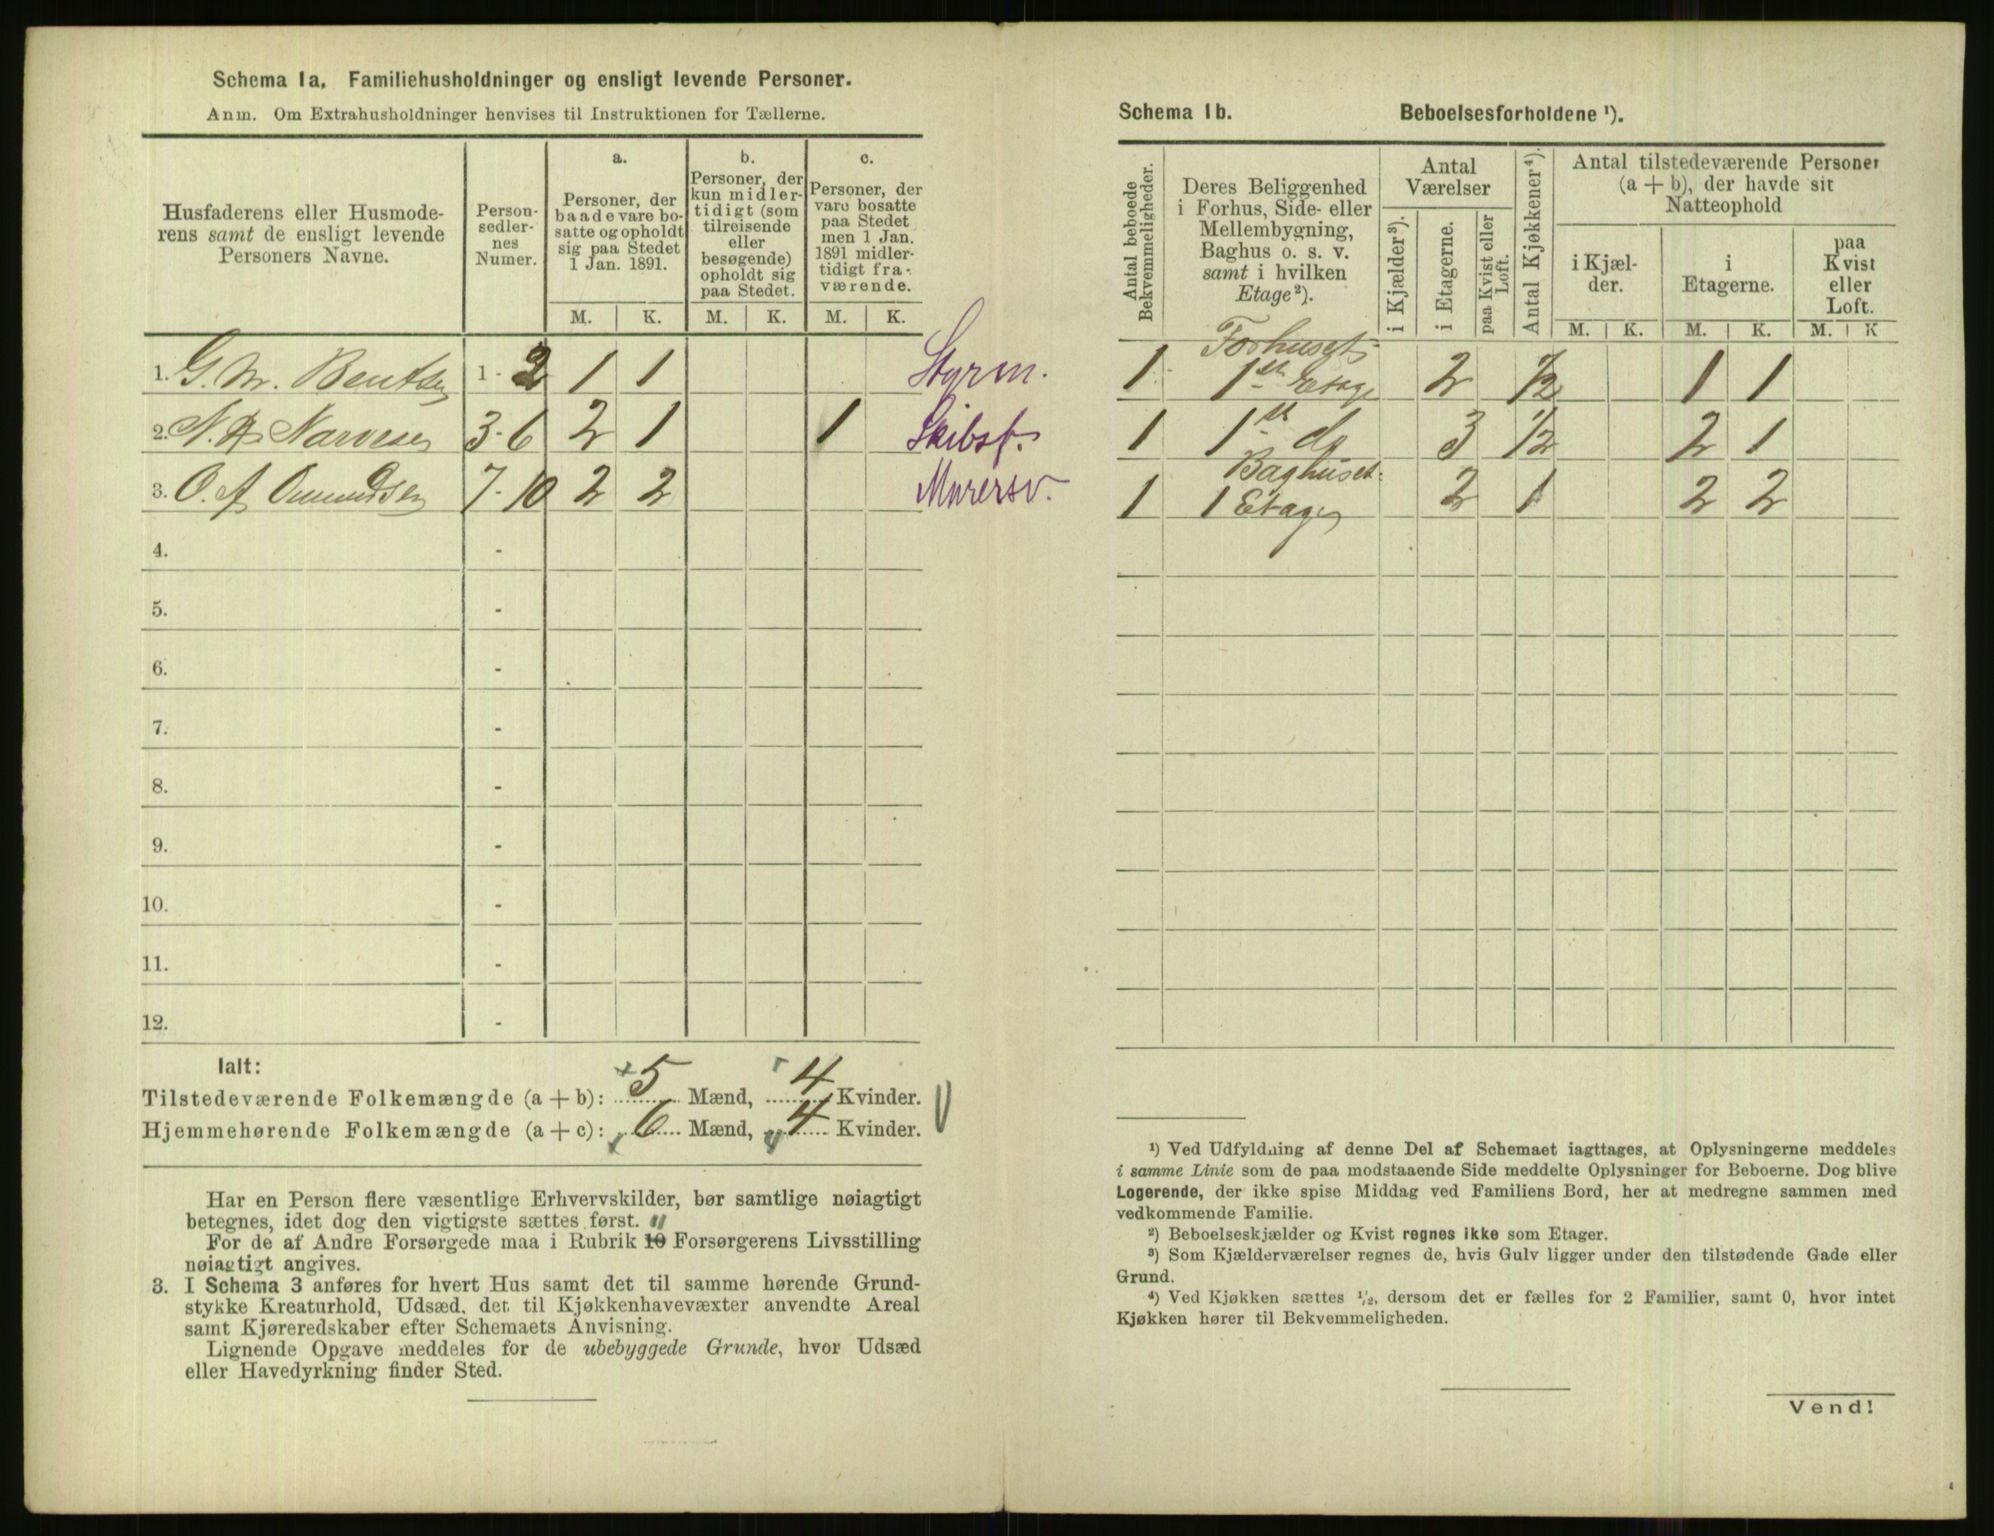 Schema 1a, Familiehusholdninger og ensligt levende Personer.
Anm. Om Extrahusholdninger henvises til Instruktionen for Tællerne.
Husfaderens eller Husmode-
rens samt de ensligt levende
Personers Navne.
Person-
sedler-
nes
Numer.
a.
Personer, der
baade vare bo-
satte og opholdt
sig paa Stedet
1 Jan. 1891.
b.
Personer, der
kun midler-
tidigt (som
tilreisende
eller
besøgende)
opholdt sig
paa Stedet.
c.
Personer, der
vare bosatte
paa Stedet
men 1 Jan.
1891 midler-
tidigt fra-
værende.
M. K. M. K. M. K.
1. G. M. Bentsen 1 - 2 1 1 Styrm.
2. N. A. Narvesen 3 - 6 2 1 1 Skibsf.
3. O. A. Omundsen 7 - 10 2 2 Murersv.
4. -
5. -
6. -
7. -
8. -
9. -
10. -
11. -
12. -
Ialt:
Tilstedeværende Folkemængde (a + b): 5 Mænd, 4 Kvinder.
Hjemmehørende Folkemængde (a + c): 6 Mænd, 4 Kvinder.
Har en Person flere væsentlige Erhvervskilder, bør samtlige nøiagtigt
betegnes, idet dog den vigtigste sættes først. 11
For de af Andre Forsørgede maa i Rubrik 10 Forsørgerens Livsstilling
nøiagtigt angives.
3. I Schema 3 anføres for hvert Hus samt det til samme hørende Grund-
stykke Kreaturhold, Udsæd, det til Kjøkkenhavevæxter anvendte Areal
samt Kjøreredskaber efter Schemaets Anvisning.
Lignende Opgave meddeles for de ubebyggede Grunde, hvor Udsæd
eller Havedyrkning finder Sted.
Schema 1b. Beboelsesforholdene ¹).
Antal beboede
Bekvemmeligheder.
Deres Beliggenhed
i Forhus, Side- eller
Mellembygning,
Baghus o. s. v.
samt i hvilken
Etage²).
Antal
Værelser
i Kjælder³).
i Etagerne.
paa Kvist eller
Loft.
Antal Kjøkkener⁴).
Antal tilstedeværende Personer
(a + b), der havde sit
Natteophold
i Kjæl-
der.
i
Etagerne.
paa
Kvist
eller
Loft.
M. K. M. K. M. K
Forhuset
1 1ste Etage 2 1/2 1 1
1 1ste do 3 1/2 2 1
Baghuset
1 1 Etage 2 1 2 2
¹) Ved Udfyldning af denne Del af Schemaet iagttages, at Oplysningerne meddeles
i samme Linie som de paa modstaaende Side meddelte Oplysninger for Beboerne. Dog blive
Logerende, der ikke spise Middag ved Familiens Bord, her at medregne sammen med
vedkommende Familie.
²) Beboelseskjælder og Kvist regnes ikke som Etager.
³) Som Kjælderværelser regnes de, hvis Gulv ligger under den tilstødende Gade eller
Grund.
⁴) Ved Kjøkken sættes ½, dersom det er fælles for 2 Familier, samt 0, hvor intet
Kjøkken hører til Bekvemmeligheden.
Vend!